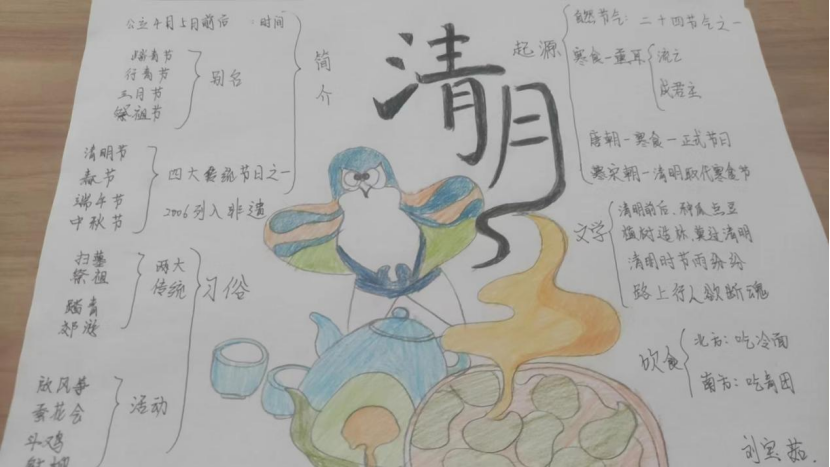 清明
简介
公立4月5月前后：时间
踏青节
行青节
三月节
祭祖节
别名
清明节
春节
端午节
中秋节
四大传统节日之一
2006列入非遗
扫墓
祭祖
踏青
郊游
两大
传统
习俗
放风筝
蚕花会
斗鸡
活动
起源
自然节气：二十四节气之一
寒食—重耳
流亡
成君主
唐朝—寒食—正式节日
宋朝—清明取代寒食节
文学
清明前后，种瓜点豆
植树造林，莫过清明
清明时节雨纷纷
路上行人欲断魂
饮食
北方：吃冷面
南方：吃青团